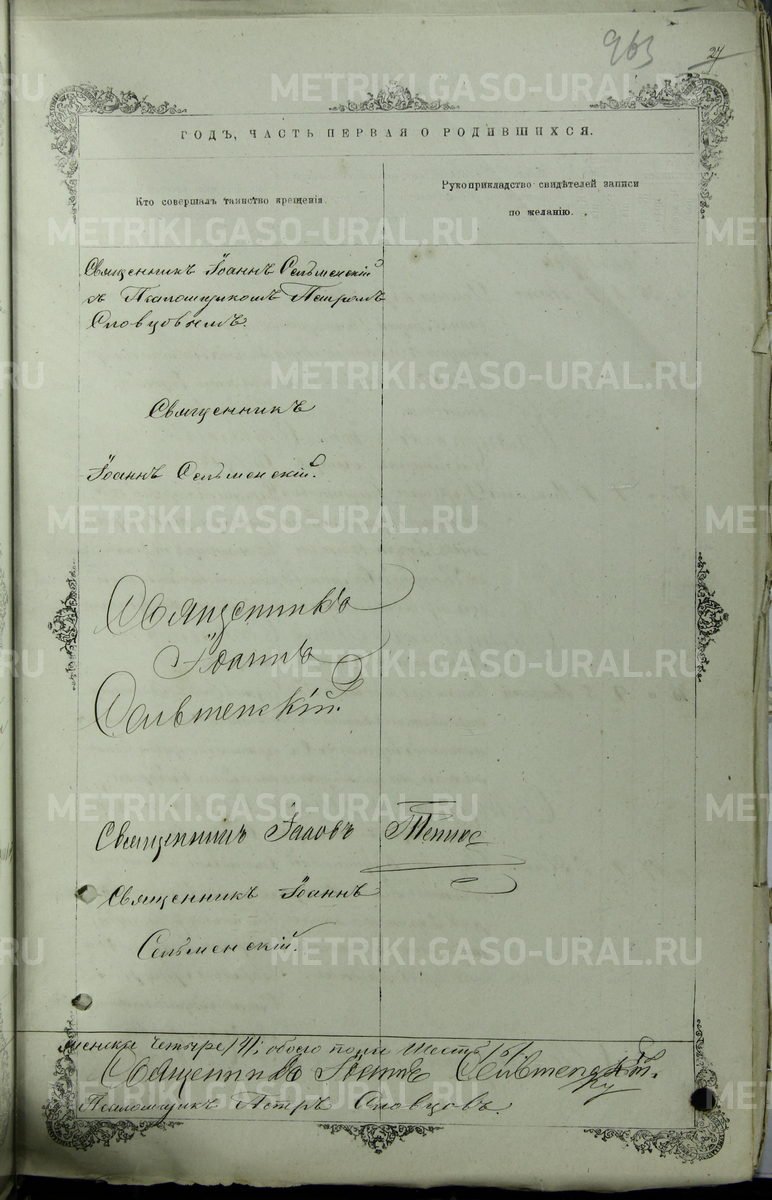 963
27
ГОДЪ, ЧАСТЬ ПЕРВАЯ О РОДИВШИХСЯ.
Кто совершалъ таинство крещенія.
Рукоприкладство свидѣтелей записи
по желанію.
Священникъ Іоаннъ Сельменскій
съ Псаломщикомъ Петромъ
Словцовымъ.
Священникъ
Іоаннъ Сельменскій.
Священникъ
Іоаннъ
Сельменскій.
Священникъ Іаковъ
Священникъ Іоаннъ
Сельменскій.
женска четыре /4/, обоего пола шесть /6/
Священникъ Іоаннъ Сельменскій.
Псаломщикъ Петръ Словцовъ.
METRIKI.GASO-URAL.RU